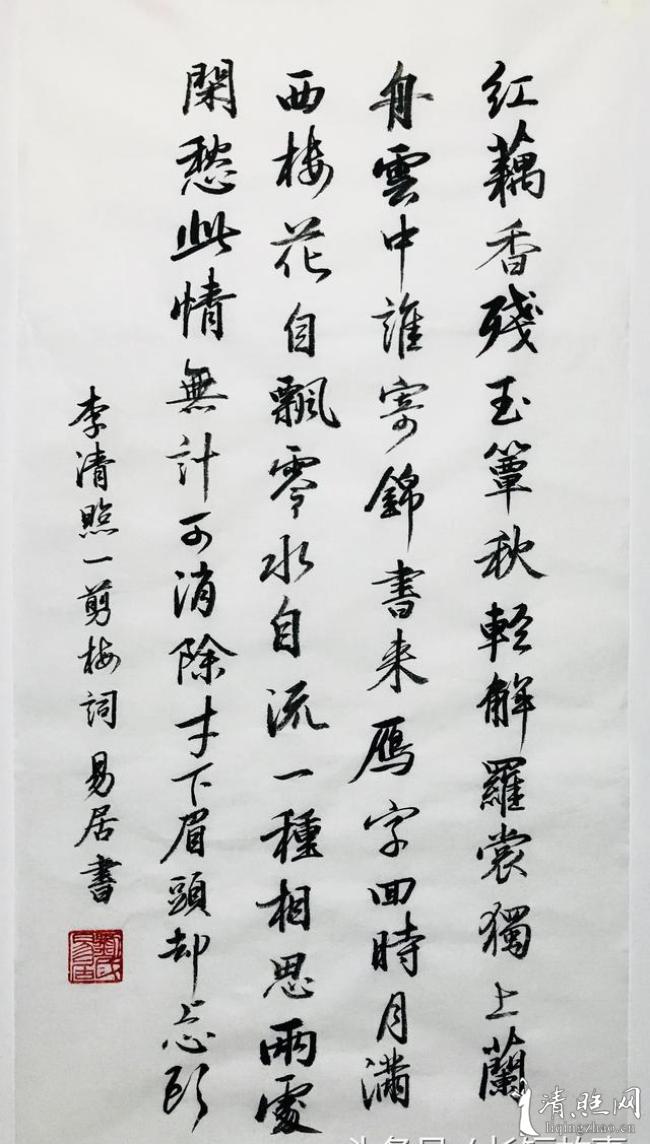 紅藕香殘玉簟秋輕解羅裳獨上蘭
舟雲中誰寄錦書来雁字回時月滿
西樓花自飄零水自流一種相思兩處
閑愁此情無計可消除才下眉頭却上心頭
李清照一剪梅詞易居書
清照网
liqingzhao.cn